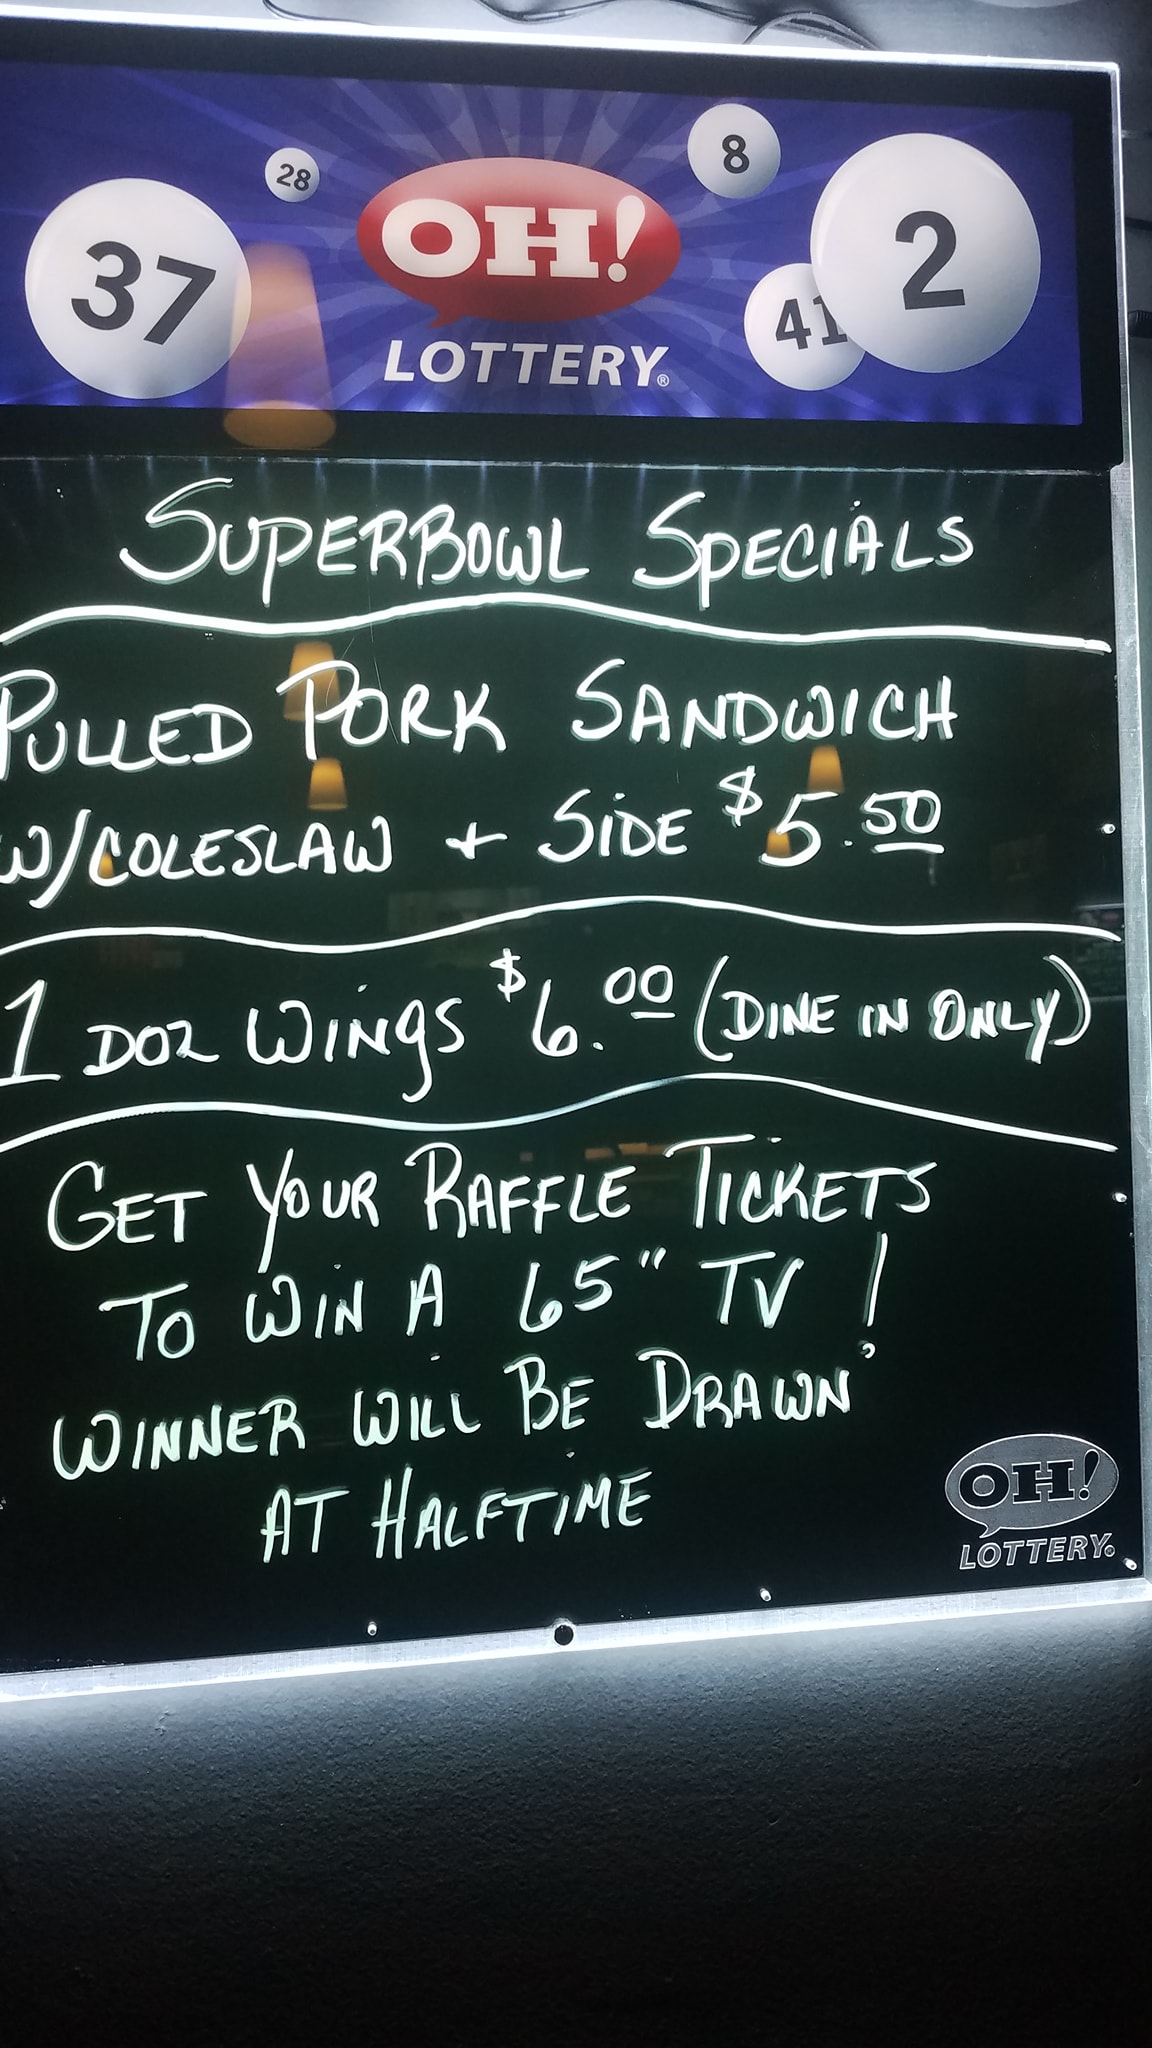 37
28
OH!
8
41
2
LOTTERY®
SUPERBOWL SPECIALS
PULLED PORK SANDWICH
W/COLESLAW + SIDE $5.50
1 DOZ WINGS $6.00 (DINE IN ONLY)
GET YOUR RAFFLE TICKETS
TO WIN A 65" TV!
WINNER WILL BE DRAWN
AT HALFTIME
OH!
LOTTERY®